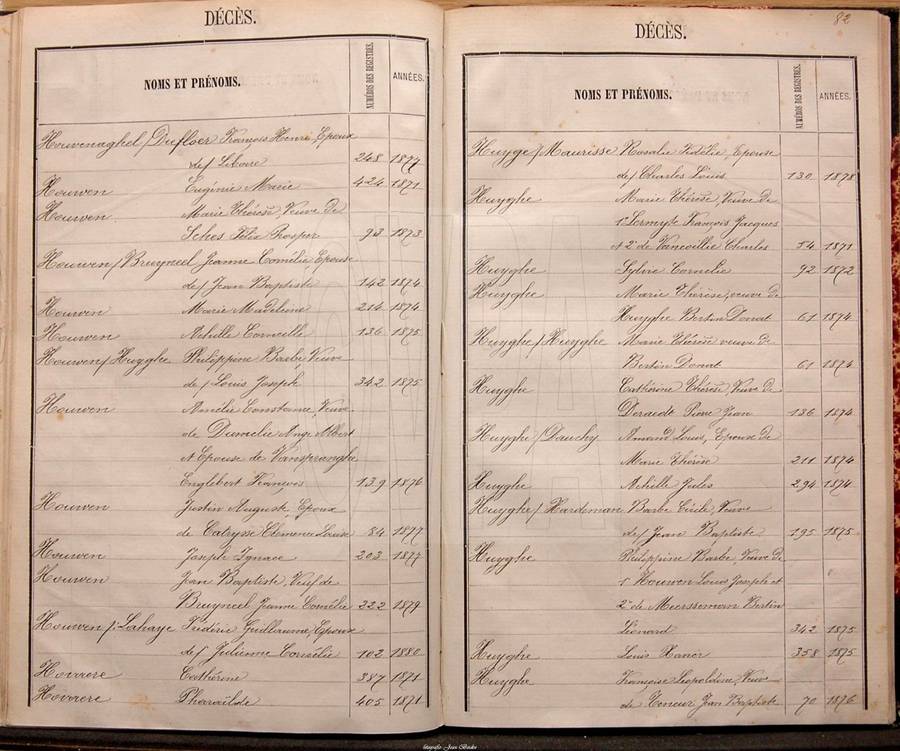 DÉCÈS.
NOMS ET PRÉNOMS.
NUMÉROS DES REGISTRES.
ANNÉES.
Houvenaghel / Dufloer François Henri, Epoux
de / Liboire 248 1877
Houwen Eugénie Marie 424 1871
Houwen Marie Thérèse, Veuve de
Schos Félix Prosper 93 1873
Houwen / Bruyneel Jeanne Cornélie, Epouse
de / Jean Baptiste 142 1874
Houwen Marie Madeleine 214 1874
Houwen Achille Corneille 136 1875
Houwen / Huyghe Philippine Barbe, Veuve
de / Louis Joseph 342 1875
Houwen Amélie Constance, Veuve
de Ange Albert
et Epouse de Vanspranghe
Englebert François 139 1876
Houwen Justin Auguste, Epoux
de Catrysse Clemence Louise 84 1877
Houwen Joseph Ignace 203 1877
Houwen Jean Baptiste, Veuf de
Bruyneel Jeanne Cornélie 222 1879
Houwen / Lahaye Frédéric Guillaume, Epoux
de / Julienne Cornélie 102 1880
Hovaere Cathérine 387 1871
Hovaere Pharaïlde 405 1871
82
DÉCÈS.
NOMS ET PRÉNOMS.
NUMÉROS DES REGISTRES.
ANNÉES.
Huyge / Maurisse Rosalie Fidélie, Epouse
de / Charles Louis 130 1878
Huyghe Marie Thérèse, Veuve de
1° Lermyte François Jacques
et 2° de Charles 54 1871
Huyghe Sylvie Cornelie 92 1872
Huyghe Marie Thérèse, veuve de
Huyghe Bertin Donat 61 1874
Huyghe / Huyghe Marie Thérèse veuve de
Bertin Donat 61 1874
Huyghe Cathérine Thérèse, Veuve de
Deraedt Pierre Jean 186 1874
Huyghe / Dauchy Amand Louis, Epoux de
Marie Thérèse 211 1874
Huyghe Achille Jules 294 1874
Huyghe / Hardeman Barbe Cécile, Veuve
de / Jean Baptiste 195 1875
Huyghe Philippine Barbe, Veuve de
1° Houwen Louis Joseph et
2° de Meersseman Bertin
Léonard 342 1875
Huyghe Louis Xavier 358 1875
Huyghe Françoise Léopoldine, Veuve
de Jean Baptiste 70 1876
fotografie Jean Boudry